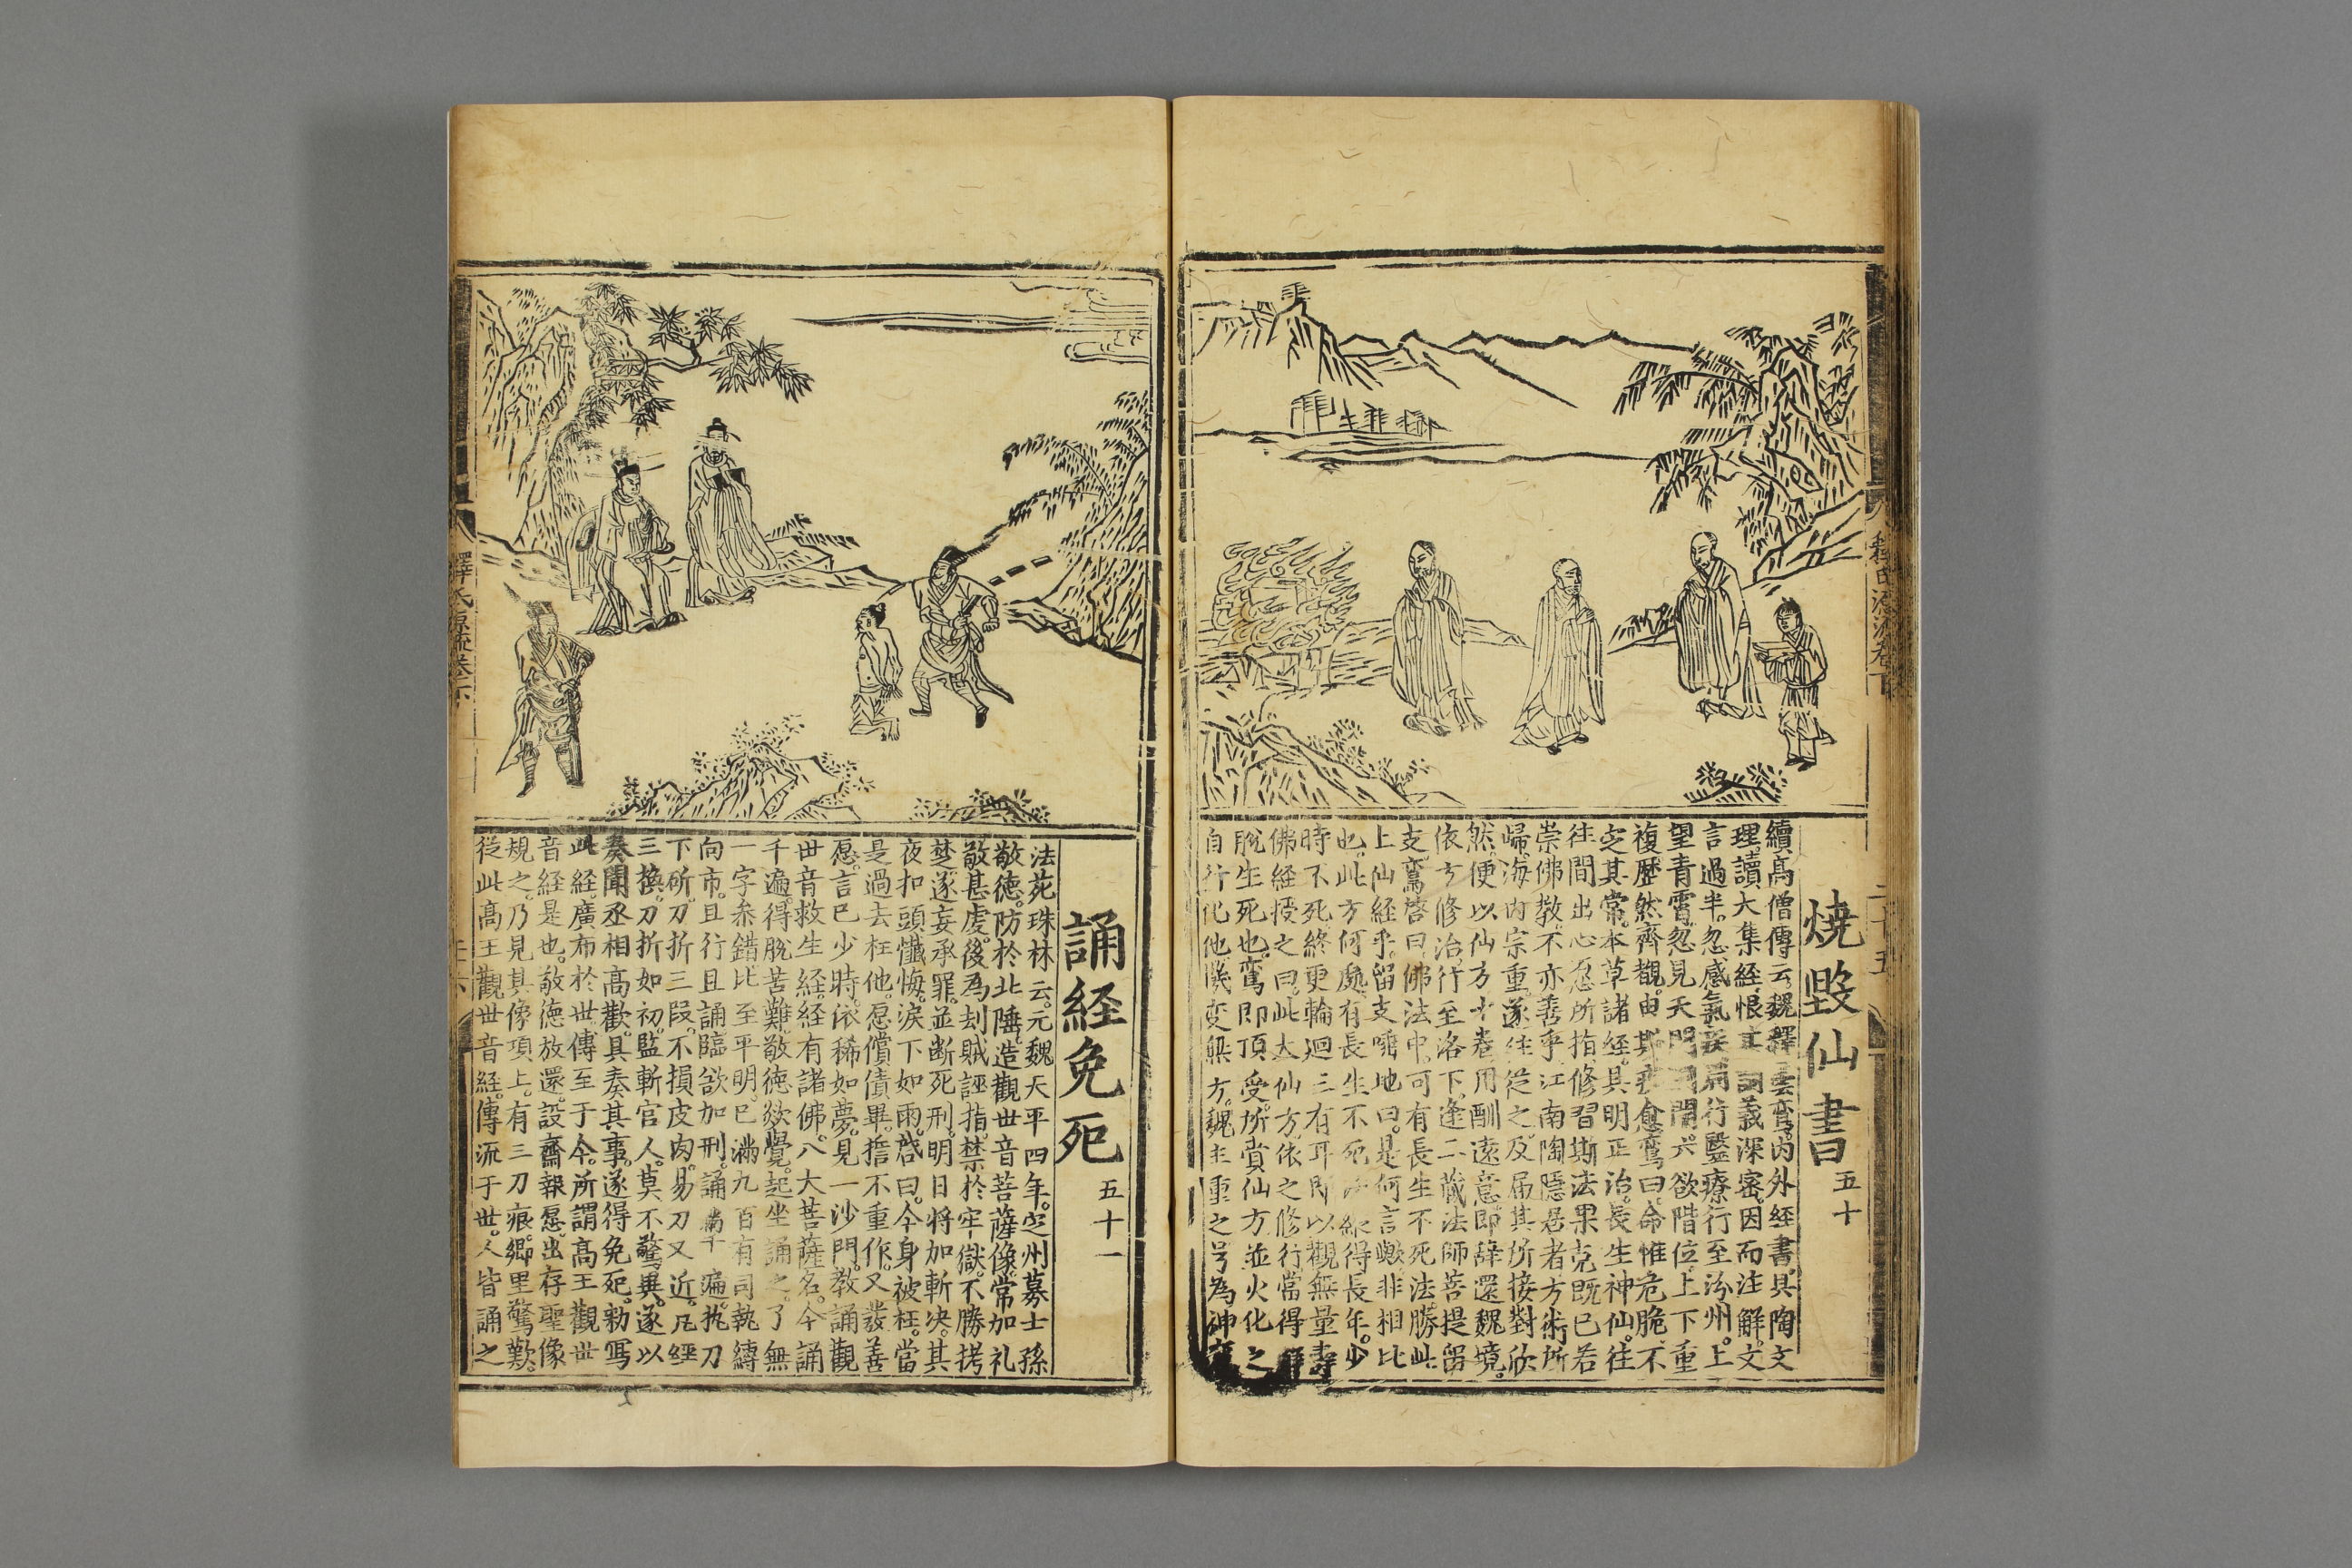 釋氏源流卷下
二十五
燒毀仙書 五十
續高僧傳云魏釋曇鸞內外経書具陶文
理讀大集経恨 義深密因而注解文
言過半忽感氣疾 行醫療行至汾州上
望青霄忽見天門 開六欲階位上下重
複歷然齊覩由斯疾愈鸞曰命惟危脆不
定其常本草諸経具明正治長生神仙徃
徃間出心忩所指修習斯法果克既已若
崇佛教不亦善乎江南陶隱居者方術所
歸海內宗重遂徃從之及屆其所接對欣
然便以仙方十卷用酬遠意即辞還魏境
依方修治行至洛下逢二藏法師菩提留
支鸞啓曰佛法中可有長生不死法勝此
上仙経乎留支唾地曰是何言歟非相比
也此方何處有長生不死 得長年少
時不死終更輪迴三有耳即以觀無量壽
佛経授之曰此大仙方依之修行當得
脫生死也鸞即頂受所賫仙方並火化之
自行化他 変 方魏主重之号為神
誦経免死 五十一
法苑珠林云元魏天平四年定州募士孫
敬徳防於北陲造觀世音菩薩像常加礼
敬甚虔後為刦賊誣指禁於牢獄不勝拷
楚遂妄承罪並断死刑明日將加斬决其
夜扣頭懺悔淚下如雨啓曰今身被枉當
是過去枉他愿償債畢誓不重作又發善
愿言已少時依稀如夢見一沙門教誦觀
世音救生経経有諸佛八大菩薩名今誦
千遍得脫苦難敬徳欻覺起坐誦之了無
一字叅錯比至平明已滿九百有司執縳
向市且行且誦臨欲加刑誦滿千遍執刀
下斫刀折三叚不損皮肉易刀又近凡経
三換刀折如初監斬官人莫不驚異遂以
奏聞丞相高歡具奏其事遂得免死勑冩
此経廣布於世傳至于今所謂高王觀世
音経是也敬徳放還設齋報愿出存聖像
規之乃見其像項上有三刀痕鄉里驚歎
從此高王觀世音経傳流于世人皆誦之
釋氏源流卷下